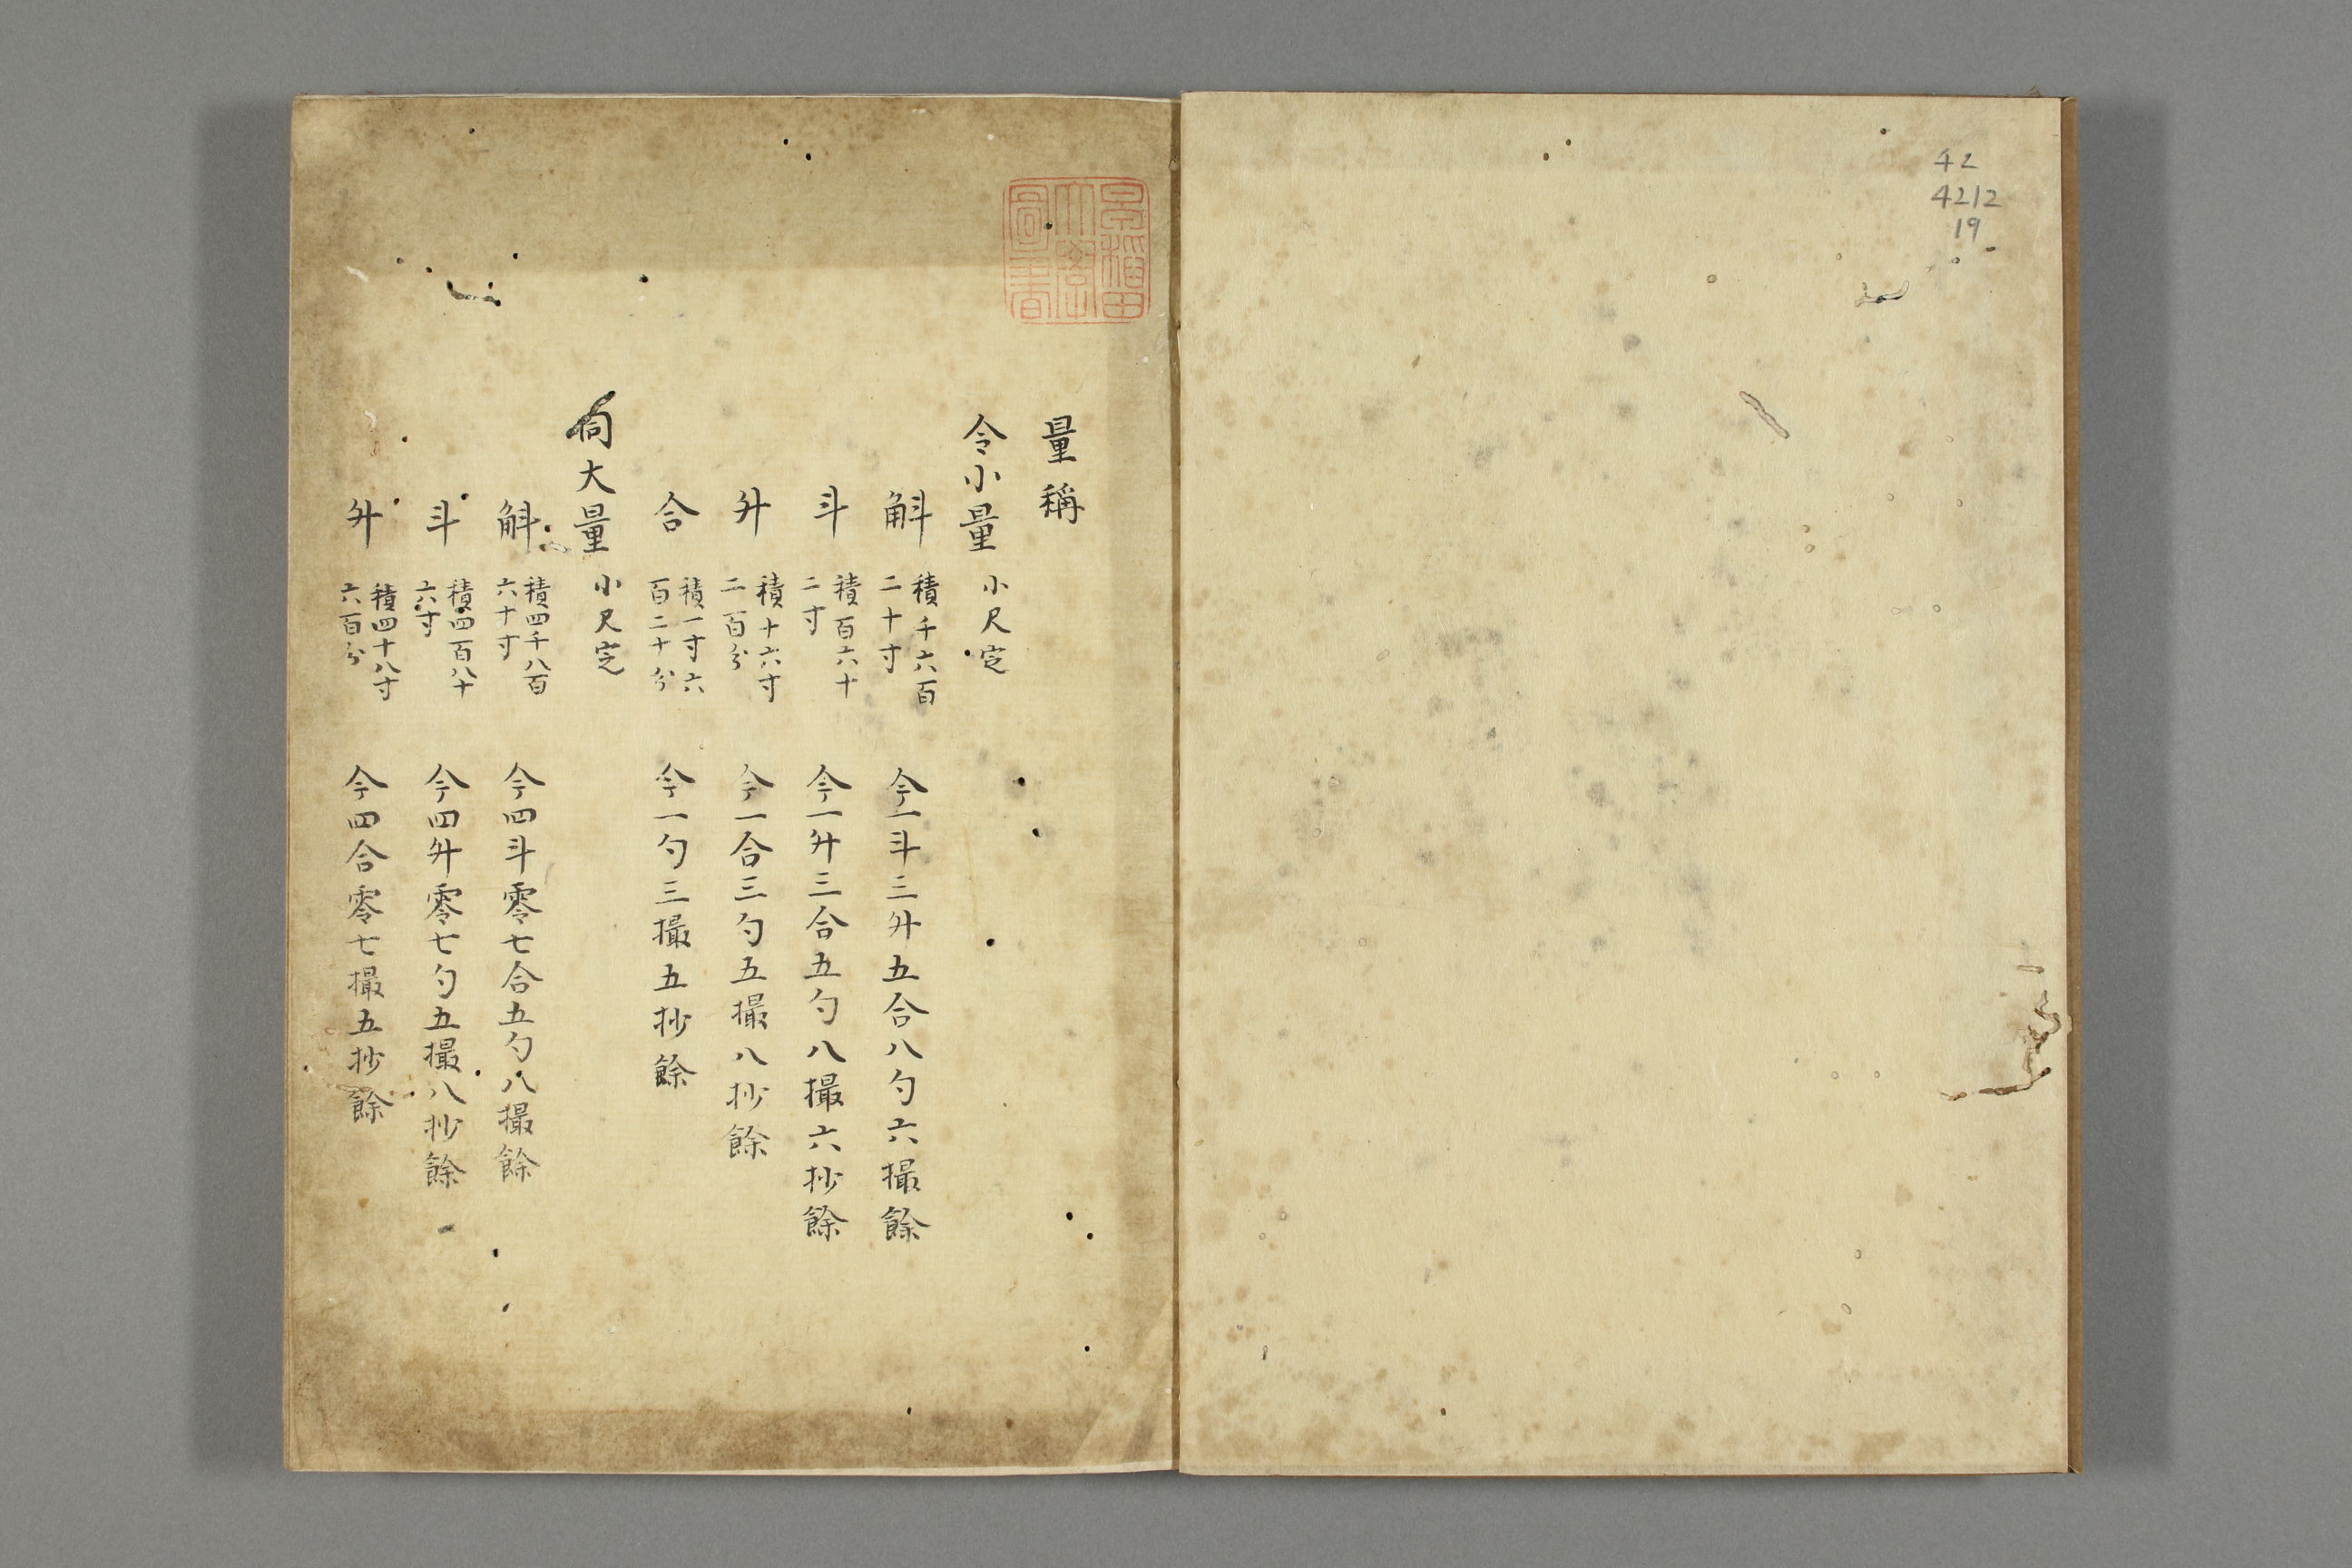 42
4212
19
早稲田大学図書
量稱
令小量 小尺定
斛 積千六百二十寸 今一斗三升五合八勺六撮餘
斗 積百六十二寸 今一升三合五勺八撮六抄餘
升 積十六寸二百分 今一合三勺五撮八抄餘
合 積一寸六百二十分 今一勺三撮五抄餘
同大量 小尺定
斛 積四千八百六十寸 今四斗零七合五勺八撮餘
斗 積四百八十六寸 今四升零七勺五撮八抄餘
升 積四十八寸六百分 今四合零七撮五抄餘